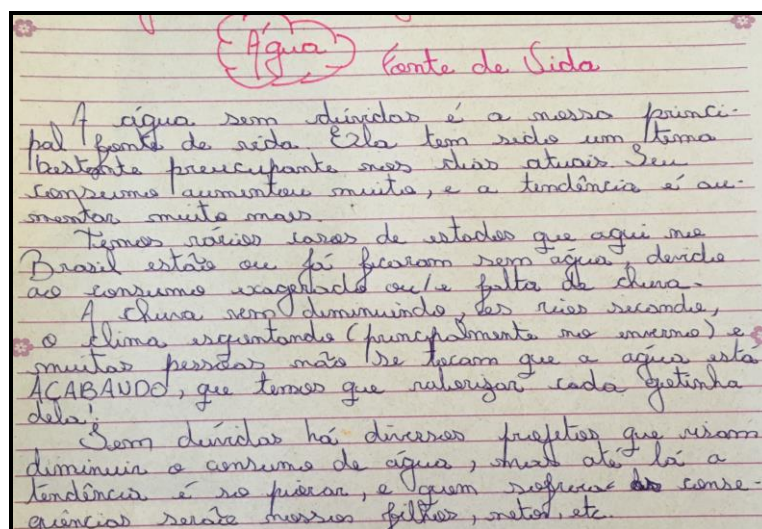 Água Fonte de Vida
A água sem dúvidas é a nossa princi-
pal fonte de vida. Ela tem sido um tema
bastante preucupante nos dias atuais. Seu
consumo aumentou muito, e a tendência é au-
mentar muito mais.
Temos vários casos de estados que aqui no
Brasil estão ou já ficaram sem água, devido
ao consumo exagerado ou/e falta de chuva.
A chuva vem diminuindo, os rios secando,
o clima esquentando (principalmente no inverno) e
muitas pessoas não se tocam que a agúa esta
ACABANDO, que temos que valorizar cada gotinha
dela!
Sem dúvidas há diversos projetos que visam
diminuir o consumo de água, mas até lá a
tendência é so piorar, e quem sofrera as conse-
quências serão nossos filhos, netos, etc.